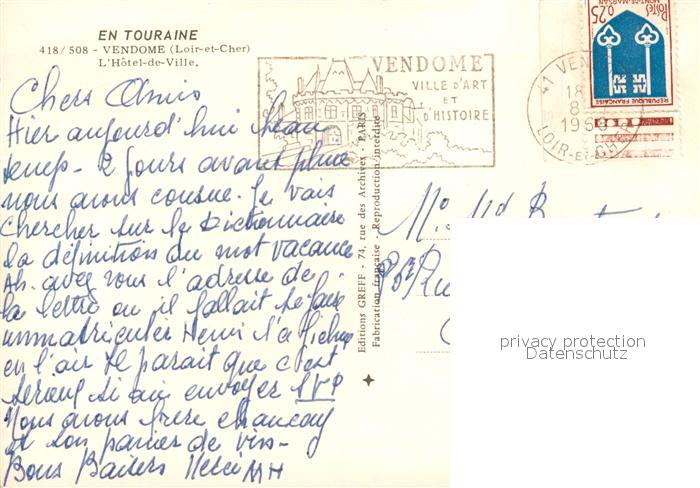 EN TOURAINE
418/508 - VENDOME (Loir-et-Cher)
L'Hôtel-de-Ville.
Chers Amis
Hier aujourd'hui beau
temps - 2 jours avant pluie
nous avons cousue. Je vais
chercher sur le Dictionnaire
la définition du mot vacance
Ah. avez vous l'adresse de
la lettre ou il fallait se faire
immatriculer Henri l'a fichue
en l'air Il parait que c'est
serieux si oui envoyer SVP
Nous avons frere
et son panier de
Bons Baisers Merci MH
Editions GREFF - 74, rue des Archives - PARIS
Fabrication française - Reproduction interdite
VENDOME
VILLE D'ART
ET
D'HISTOIRE
41 VEN
18
8
196
LOIR-ET-CHER
POSTES
0,25
MONT-DE-MARSAN
REPUBLIQUE FRANÇAISE
privacy protection
Datenschutz